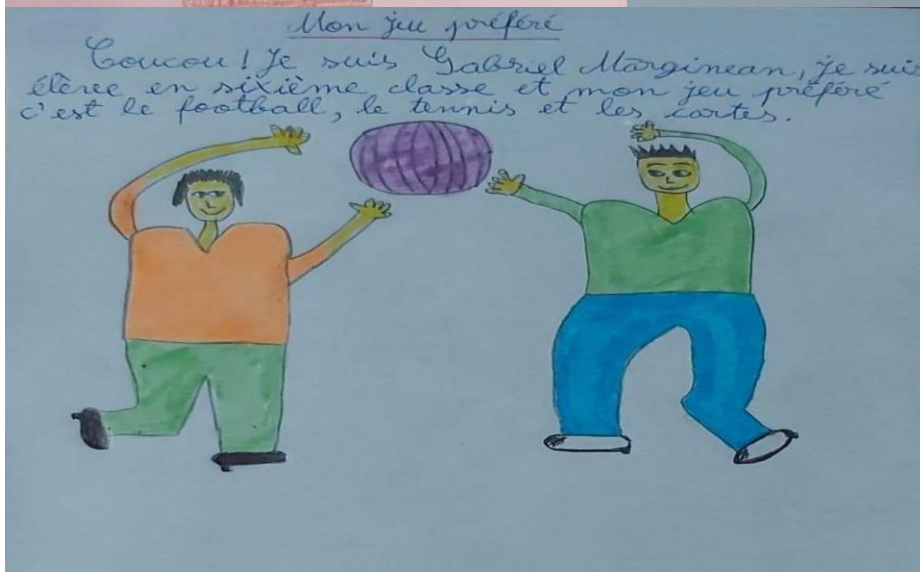 Mon jeu préféré
Coucou! Je suis Gabriel Marginean, je suis
élève en sixième classe et mon jeu préféré
c'est le football, le tennis et les cartes.